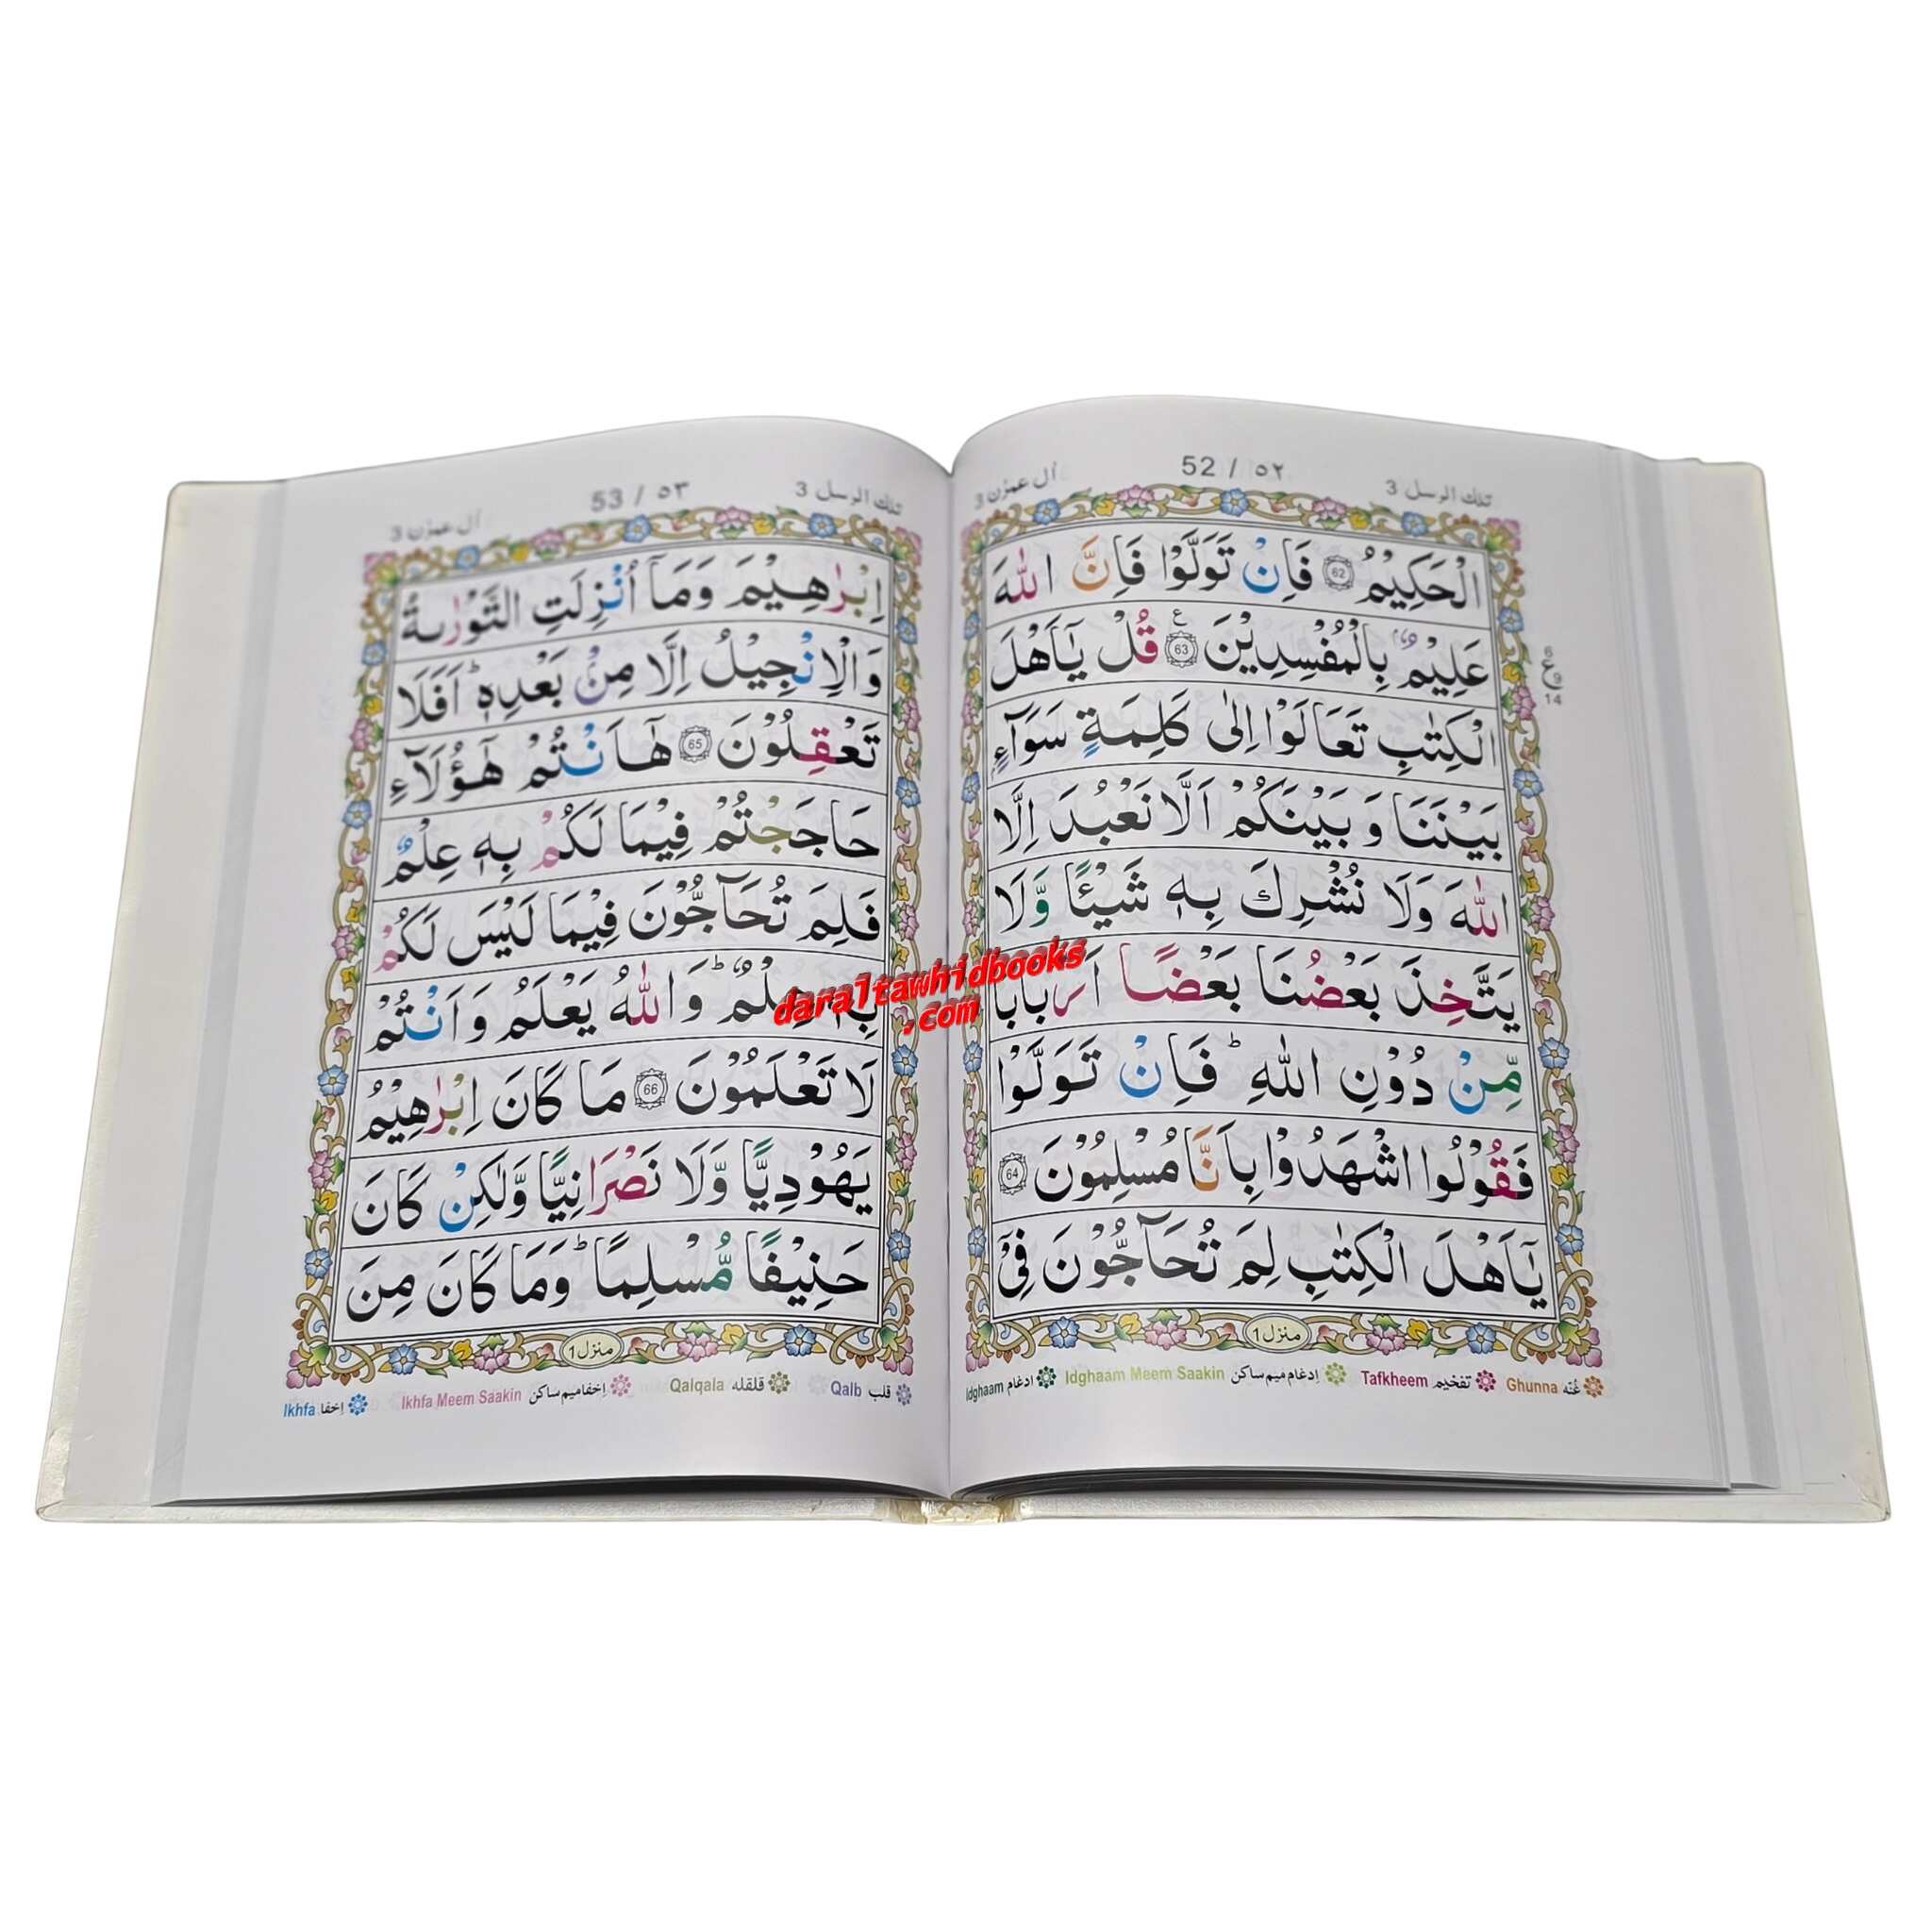 تلك الرسل 3
52 / ٥٢
اٰل عمرٰن 3
الْحَكِيْمُ 62 فَاِنْ تَوَلَّوْا فَاِنَّ اللّٰهَ
عَلِيْمٌۢ بِالْمُفْسِدِيْنَ 63 ع قُلْ يٰۤاَهْلَ
الْكِتٰبِ تَعَالَوْا اِلٰى كَلِمَةٍ سَوَآءٍۭ
بَيْنَنَا وَ بَيْنَكُمْ اَلَّا نَعْبُدَ اِلَّا
اللّٰهَ وَلَا نُشْرِكَ بِهٖ شَيْـًٔا وَّلَا
يَتَّخِذَ بَعْضُنَا بَعْضًا اَرْبَابًا
مِّنْ دُوْنِ اللّٰهِ ؕ فَاِنْ تَوَلَّوْا
فَقُوْلُوا اشْهَدُوْا بِاَنَّا مُسْلِمُوْنَ 64
يٰۤاَهْلَ الْكِتٰبِ لِمَ تُحَآجُّوْنَ فِيْۤ
6
ع 9
14
منزل 1
Ghunna غُنّه Tafkheem تفخيم Idghaam Meem Saakin إدغام ميم ساكن Idghaam ادغام
تلك الرسل 3
53 / ٥٣
اٰل عمرٰن 3
اِبْرٰهِيْمَ وَمَاۤ اُنْزِلَتِ التَّوْرٰىةُ
وَالْاِنْجِيْلُ اِلَّا مِنْۢ بَعْدِهٖ ؕ اَفَلَا
تَعْقِلُوْنَ 65 هٰۤاَنْتُمْ هٰۤؤُلَآءِ
حَاجَجْتُمْ فِيْمَا لَكُمْ بِهٖ عِلْمٌ
فَلِمَ تُحَآجُّوْنَ فِيْمَا لَيْسَ لَكُمْ
بِهٖ عِلْمٌ ؕ وَاللّٰهُ يَعْلَمُ وَاَنْتُمْ
لَا تَعْلَمُوْنَ 66 مَا كَانَ اِبْرٰهِيْمُ
يَهُوْدِيًّا وَّلَا نَصْرَانِيًّا وَّلٰكِنْ كَانَ
حَنِيْفًا مُّسْلِمًا ؕ وَمَا كَانَ مِنَ
منزل 1
Qalb قلب Qalqala قلقله Ikhfa Meem Saakin إخفا ميم ساكن Ikhfa إخفا
daraltawhidbooks
.com